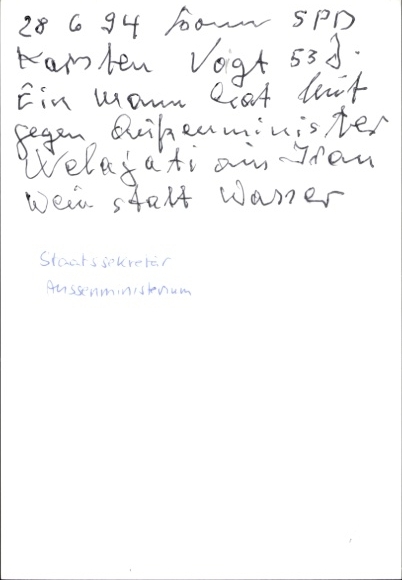 28 6 94 Bonn SPD
Karsten Voigt 53 J.
Ein Mann hat Mut
gegen Außenminister
Welajati aus Iran
Wein statt Wasser
Staatssekretär
Aussenministerium